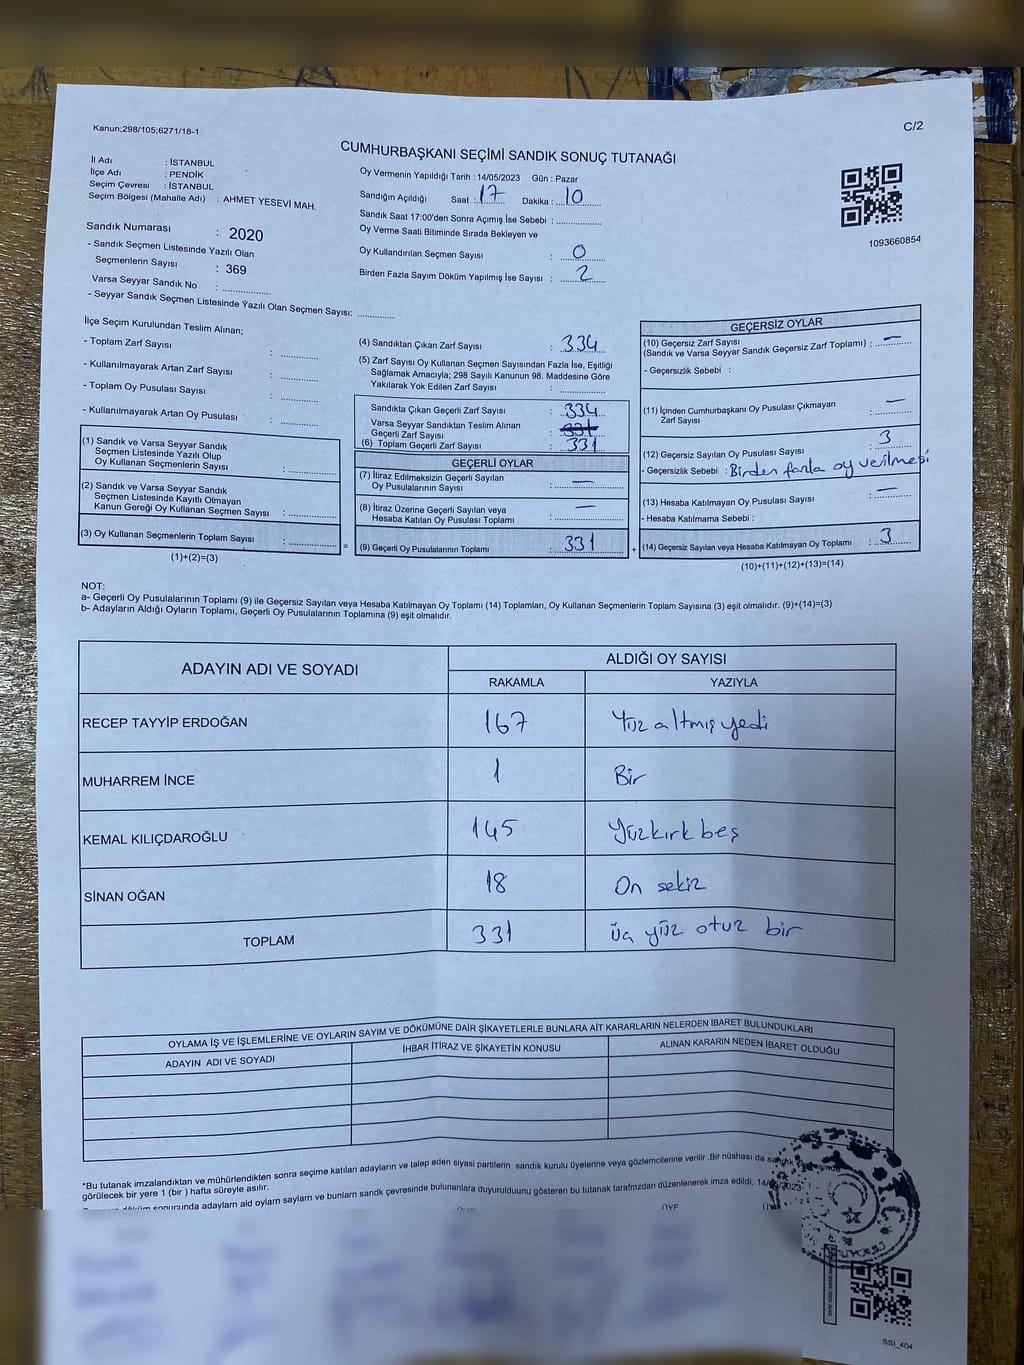 Kanun;298/105;6271/18-1
C/2
CUMHURBAŞKANI SEÇİMİ SANDIK SONUÇ TUTANAĞI
İl Adı : İSTANBUL
İlçe Adı : PENDİK
Seçim Çevresi : İSTANBUL
Seçim Bölgesi (Mahalle Adı) : AHMET YESEVİ MAH.
Sandık Numarası : 2020
- Sandık Seçmen Listesinde Yazılı Olan
Seçmenlerin Sayısı : 369
Varsa Seyyar Sandık No : ..............
- Seyyar Sandık Seçmen Listesinde Yazılı Olan Seçmen Sayısı: ............
Oy Vermenin Yapıldığı Tarih : 14/05/2023 Gün : Pazar
Sandığın Açıldığı Saat : 17 Dakika : 10
Sandık Saat 17:00'den Sonra Açımış İse Sebebi : ..............
Oy Verme Saati Bitiminde Sırada Bekleyen ve
Oy Kullandırılan Seçmen Sayısı : 0
Birden Fazla Sayım Döküm Yapılmış İse Sayısı : 2
1093660854
İlçe Seçim Kurulundan Teslim Alınan;
- Toplam Zarf Sayısı : ............
- Kullanılmayarak Artan Zarf Sayısı : ............
- Toplam Oy Pusulası Sayısı : ............
- Kullanılmayarak Artan Oy Pusulası : ............
(1) Sandık ve Varsa Seyyar Sandık
Seçmen Listesinde Yazılı Olup
Oy Kullanan Seçmenlerin Sayısı : ..............
(2) Sandık ve Varsa Seyyar Sandık
Seçmen Listesinde Kayıtlı Olmayan
Kanun Gereği Oy Kullanan Seçmen Sayısı : ..............
(3) Oy Kullanan Seçmenlerin Toplam Sayısı : ..............
(1)+(2)=(3)
=
(4) Sandıktan Çıkan Zarf Sayısı : 334
(5) Zarf Sayısı Oy Kullanan Seçmen Sayısından Fazla İse, Eşitliği
Sağlamak Amacıyla; 298 Sayılı Kanunun 98. Maddesine Göre
Yakılarak Yok Edilen Zarf Sayısı : ..............
Sandıkta Çıkan Geçerli Zarf Sayısı : 334
Varsa Seyyar Sandıktan Teslim Alınan
Geçerli Zarf Sayısı : 331
(6) Toplam Geçerli Zarf Sayısı : 331
GEÇERLİ OYLAR
(7) İtiraz Edilmeksizin Geçerli Sayılan
Oy Pusulalarının Sayısı : —
(8) İtiraz Üzerine Geçerli Sayılan veya
Hesaba Katılan Oy Pusulası Toplamı : —
(9) Geçerli Oy Pusulalarının Toplamı : 331
+
GEÇERSİZ OYLAR
(10) Geçersiz Zarf Sayısı
(Sandık ve Varsa Seyyar Sandık Geçersiz Zarf Toplamı) : —
- Geçersizlik Sebebi :
(11) İçinden Cumhurbaşkanı Oy Pusulası Çıkmayan
Zarf Sayısı : —
(12) Geçersiz Sayılan Oy Pusulası Sayısı : 3
- Geçersizlik Sebebi : Birden fazla oy verilmesi
(13) Hesaba Katılmayan Oy Pusulası Sayısı : —
- Hesaba Katılmama Sebebi :
(14) Geçersiz Sayılan veya Hesaba Katılmayan Oy Toplamı : 3
(10)+(11)+(12)+(13)=(14)
NOT:
a- Geçerli Oy Pusulalarının Toplamı (9) ile Geçersiz Sayılan veya Hesaba Katılmayan Oy Toplamı (14) Toplamları, Oy Kullanan Seçmenlerin Toplam Sayısına (3) eşit olmalıdır. (9)+(14)=(3)
b- Adayların Aldığı Oyların Toplamı, Geçerli Oy Pusulalarının Toplamına (9) eşit olmalıdır.
ADAYIN ADI VE SOYADI ALDIĞI OY SAYISI
RAKAMLA YAZIYLA
RECEP TAYYİP ERDOĞAN 167 Yüz altmış yedi
MUHARREM İNCE 1 Bir
KEMAL KILIÇDAROĞLU 145 Yüzkırk beş
SİNAN OĞAN 18 On sekiz
TOPLAM 331 üç yüz otuz bir
OYLAMA İŞ VE İŞLEMLERİNE VE OYLARIN SAYIM VE DÖKÜMÜNE DAİR ŞİKAYETLERLE BUNLARA AİT KARARLARIN NELERDEN İBARET BULUNDUKLARI
ADAYIN ADI VE SOYADI İHBAR İTİRAZ VE ŞİKAYETİN KONUSU ALINAN KARARIN NEDEN İBARET OLDUĞU
*Bu tutanak imzalandıktan ve mühürlendikten sonra seçime katılan adayların ve talep eden siyasi partilerin sandık kurulu üyelerine veya gözlemcilerine verilir .Bir nüshası da sandık
görülecek bir yere 1 (bir ) hafta süreyle asılır.
döküm sonucunda adayların ald oyların sayları ve bunların sandk çevresinde bulunanlara duyurulduunu gösteren bu tutanak tarafmzdan düzenlenerek imza edildi. 14/05/2023
ÜYE
SSİ_404